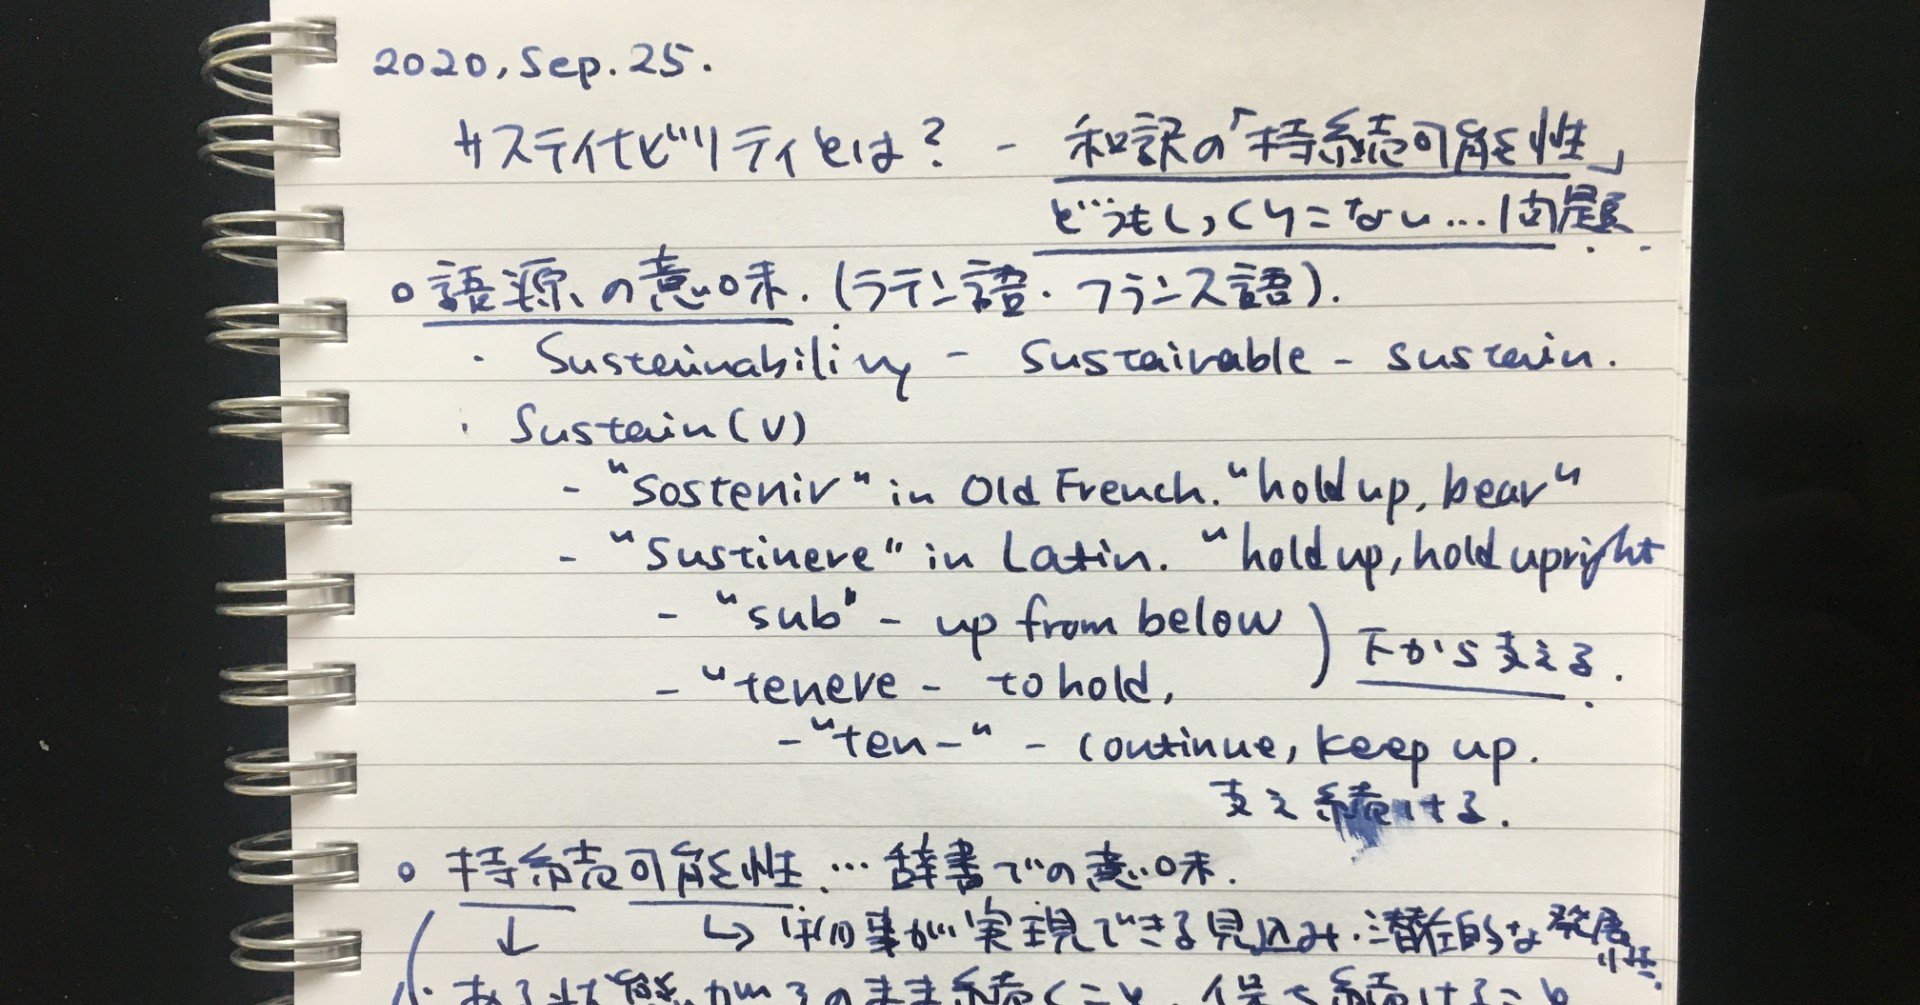 2020, Sep. 25.
サステイナビリティとは? - 和訳の「持続可能性」
どうもしっくりこない…問題.
○ 語源の意味. (ラテン語・フランス語).
· Sustainability - Sustainable - sustain.
· Sustain (v)
- "Sostenir" in Old French. "hold up, bear"
- "Sustinere" in Latin. "hold up, hold upright
- "sub" - up from below
- "tenere - to hold,
) 下から支える.
- "ten-" - continue, keep up.
支え続ける.
○ 持続可能性 … 辞書での意味.
↓ ↳ 物事が実現できる見込み・潜在的な発展性.
ある状態がそのまま続くこと、保ち続けること